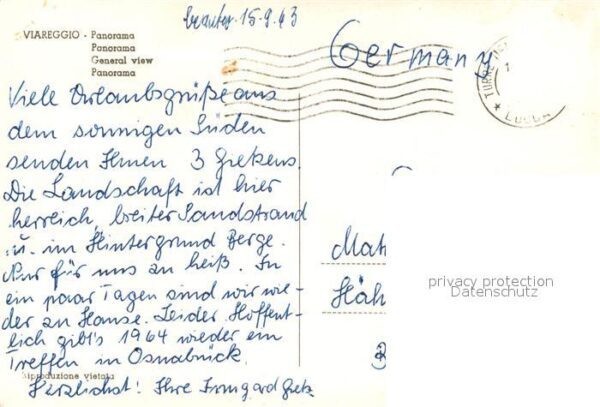 15.9.63
VIAREGGIO - Panorama
Panorama
General view
Panorama
Germany
TORRE DEL
LUCCA
Viele Urlaubsgrüße aus
dem sonnigen Süden
senden Ihnen 3 Gretzens.
Die Landschaft ist hier
herrlich, breiter Sandstrand
u. im Hintergrund Berge.
Nur für uns zu heiß. In
ein paar Tagen sind wir wie-
der zu Hause. Leider. Hoffent-
lich gibt's 1964 wieder ein
Treffen in Osnabrück.
Herzlichst! Ihre Irmgard
Mat
Häh
privacy protection
Datenschutz
Riproduzione vietata